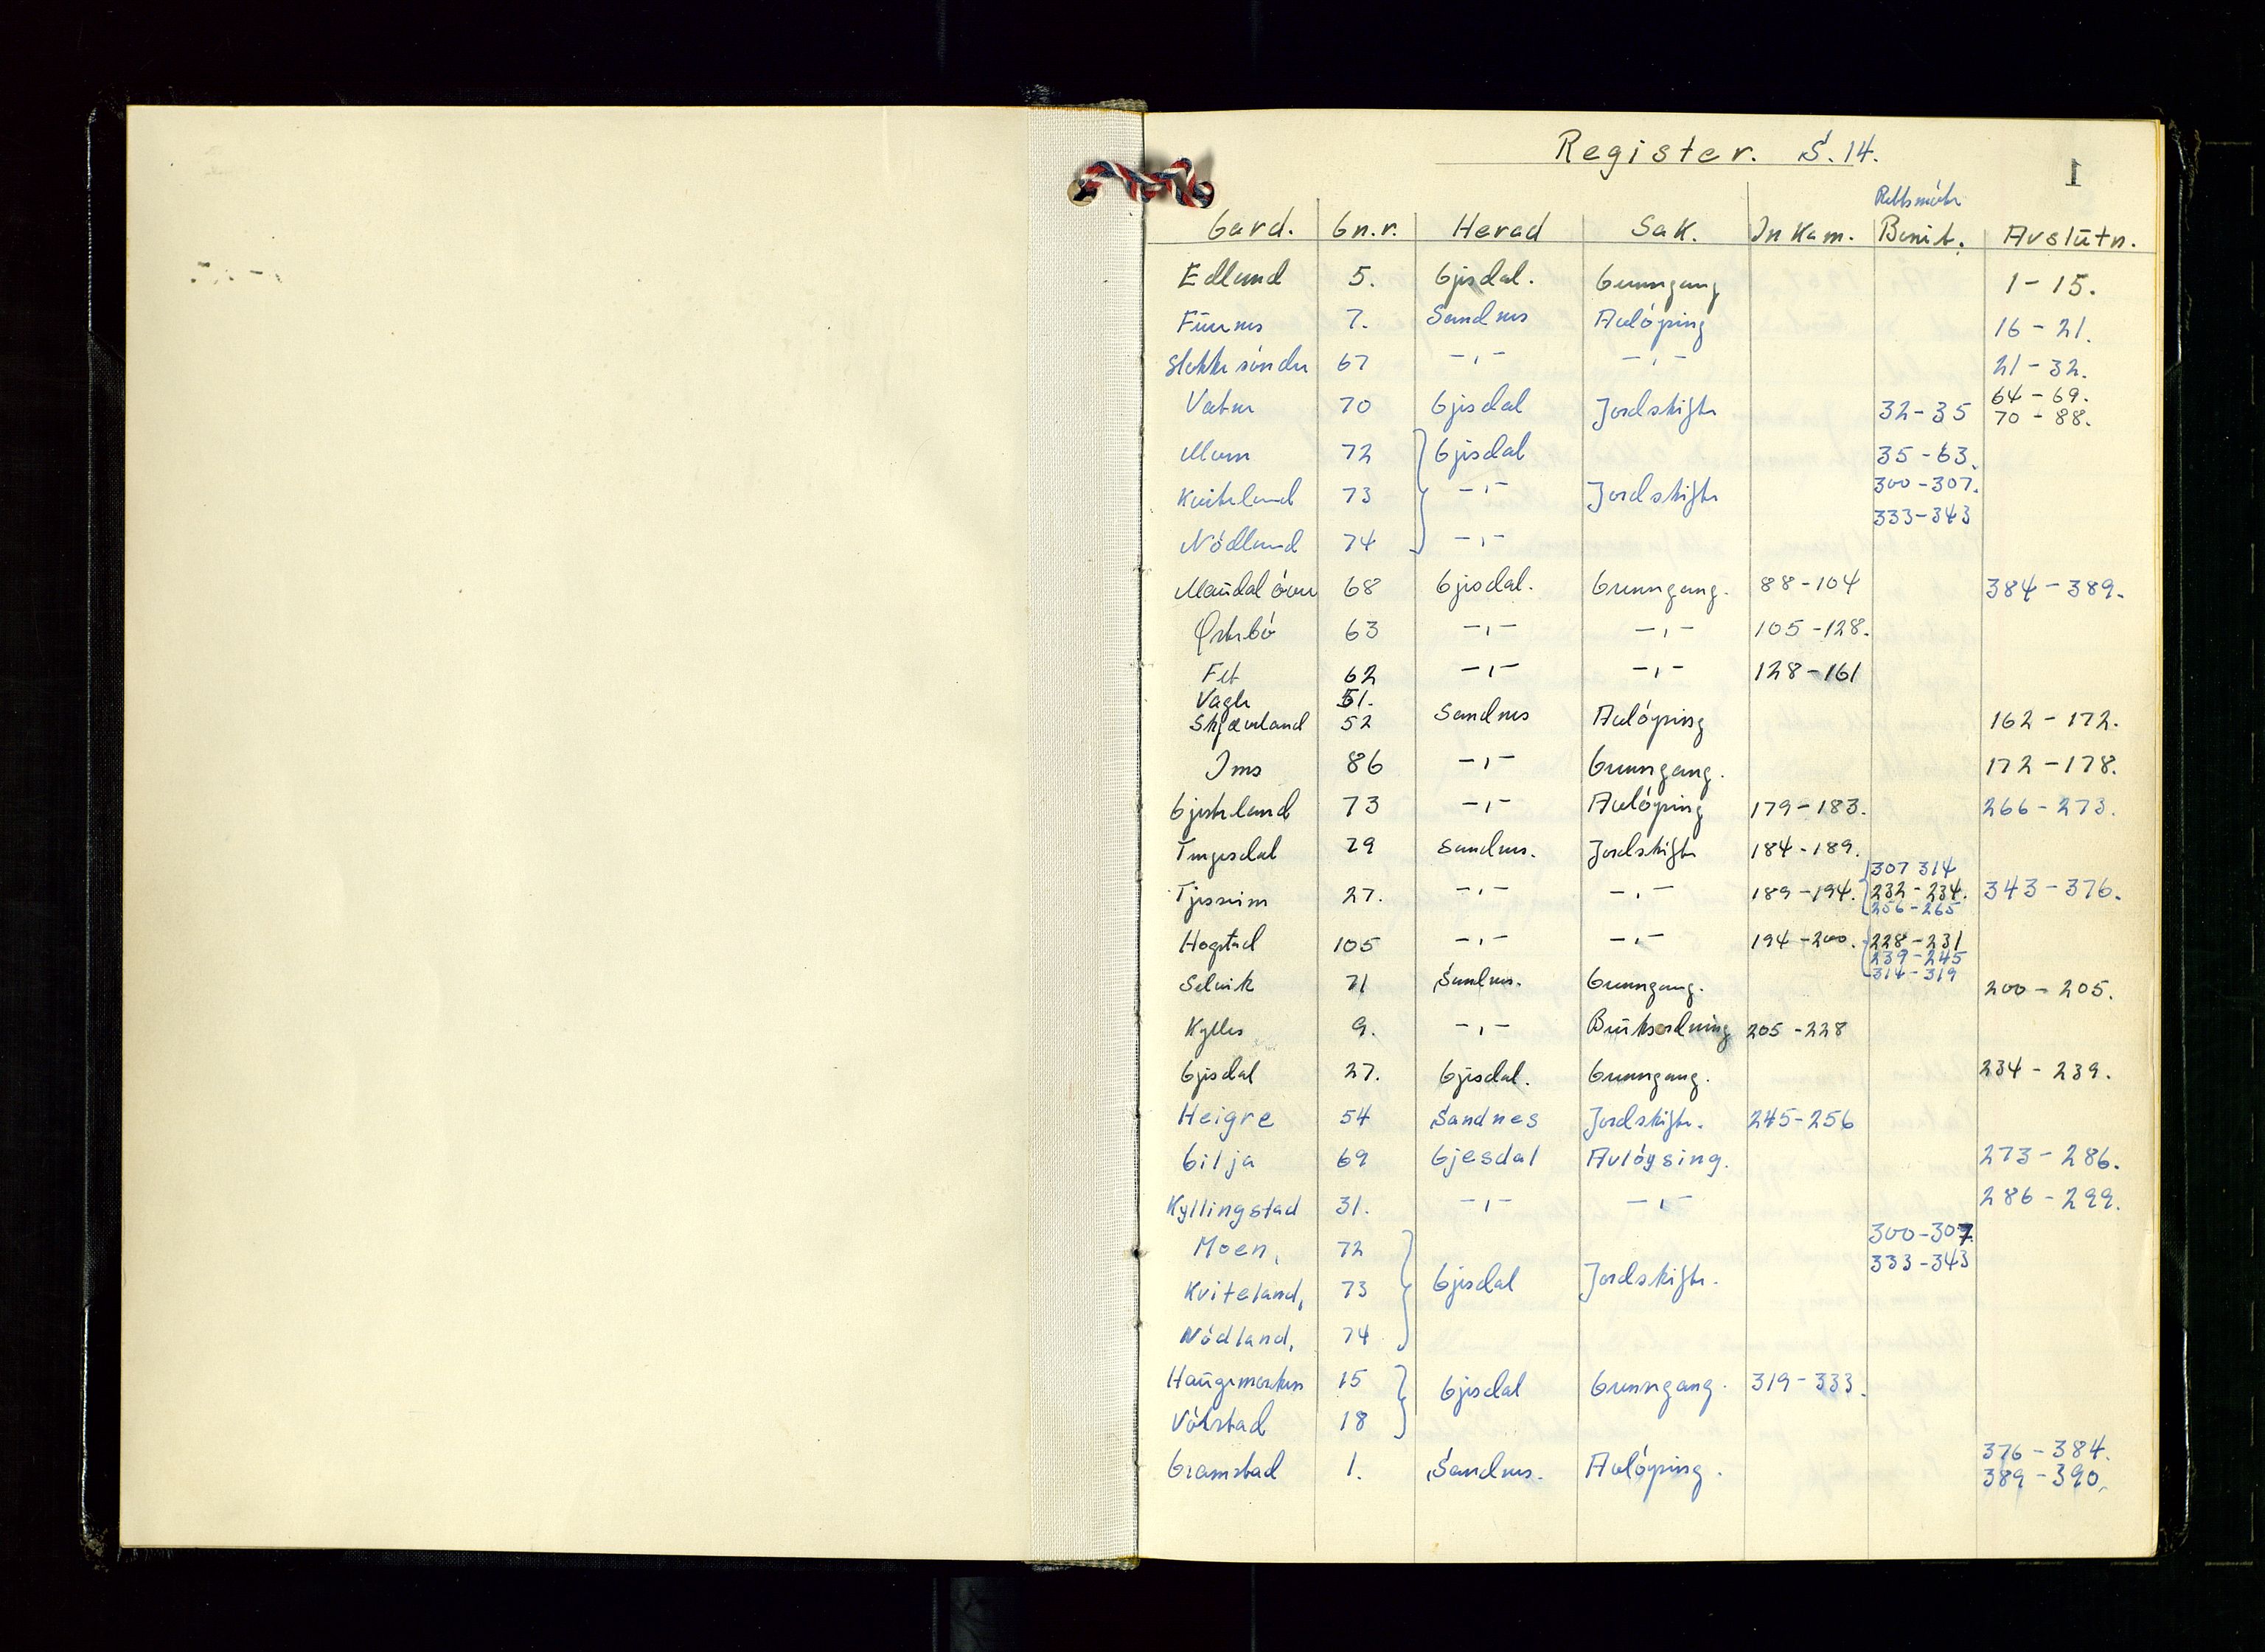 Register. S. 14.
1
Gard. Gn.r. Herad Sak. Inkam. Rettsmöte Bonit. Avslutn.
Edland 5. Gjesdal. Grenngang 1-15.
Furenes 7. Sandnes Avlöysing 16-21.
67 -,- -,- 21-32.
Vatne 70 Gjesdal Jordskifte 32-35 64-69.
70-88.
Moen 72 Gjesdal 35-63.
Kviteland 73 -,- Jordskifte 300-307.
333-343
Nödland 74 -,-
Maudal övre 68 Gjesdal. Grenngang. 88-104 384-389.
Örstbö 63 -,- -,- 105-128.
Fet 62 -,- -,- 128-161
Vagle 51.
Skjæveland 52 Sandnes Avlöysing 162-172.
Ims 86 -,- Grenngang. 172-178.
Gjesteland 73 -,- Avlöysing 179-183. 266-273.
Tengesdal 79 Sandnes. Jordskifte 184-189.
307 314
Tjessem 27. -,- -,- 189-194. 232-234. 343-376.
256-265
Hogstad 105 -,- -,- 194-200. 228-231
239-245
314-319
Selvik 71 Sandnes. Grenngang. 200-205.
Kylles 9. -,- Bruksordning 205-228
Gjesdal 27. Gjesdal. Grenngang. 234-239.
Heigre 54 Sandnes Jordskifte. 245-256
Gilja 69 Gjesdal Avlöysing. 273-286.
Kyllingstad 31. -,- -,- 286-299.
Moen, 72 300-307.
333-343
Kviteland, 73 Gjesdal Jordskifte.
Nödland, 74
Haugemarken 15 Gjesdal Grenngang. 319-333.
Völstad 18
376-384.
Gramstad 1. Sandnes. Avlöysing.
389-390.